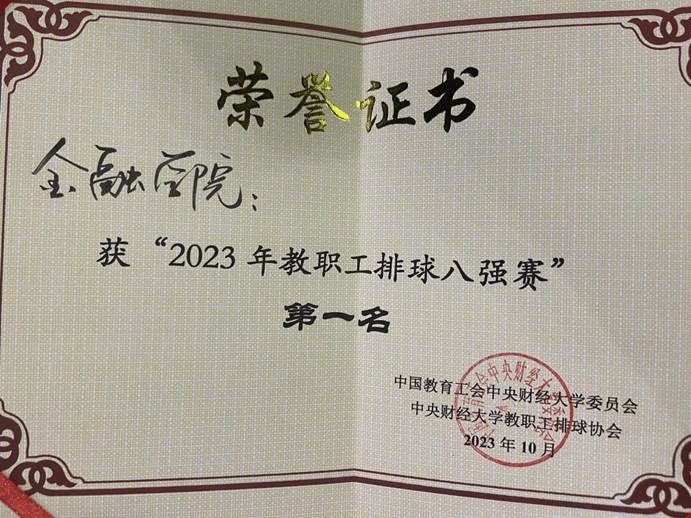 荣誉证书
金融学院：
获“2023 年教职工排球八强赛”
第一名
中国教育工会中央财经大学委员会
中央财经大学教职工排球协会
2023 年 10 月